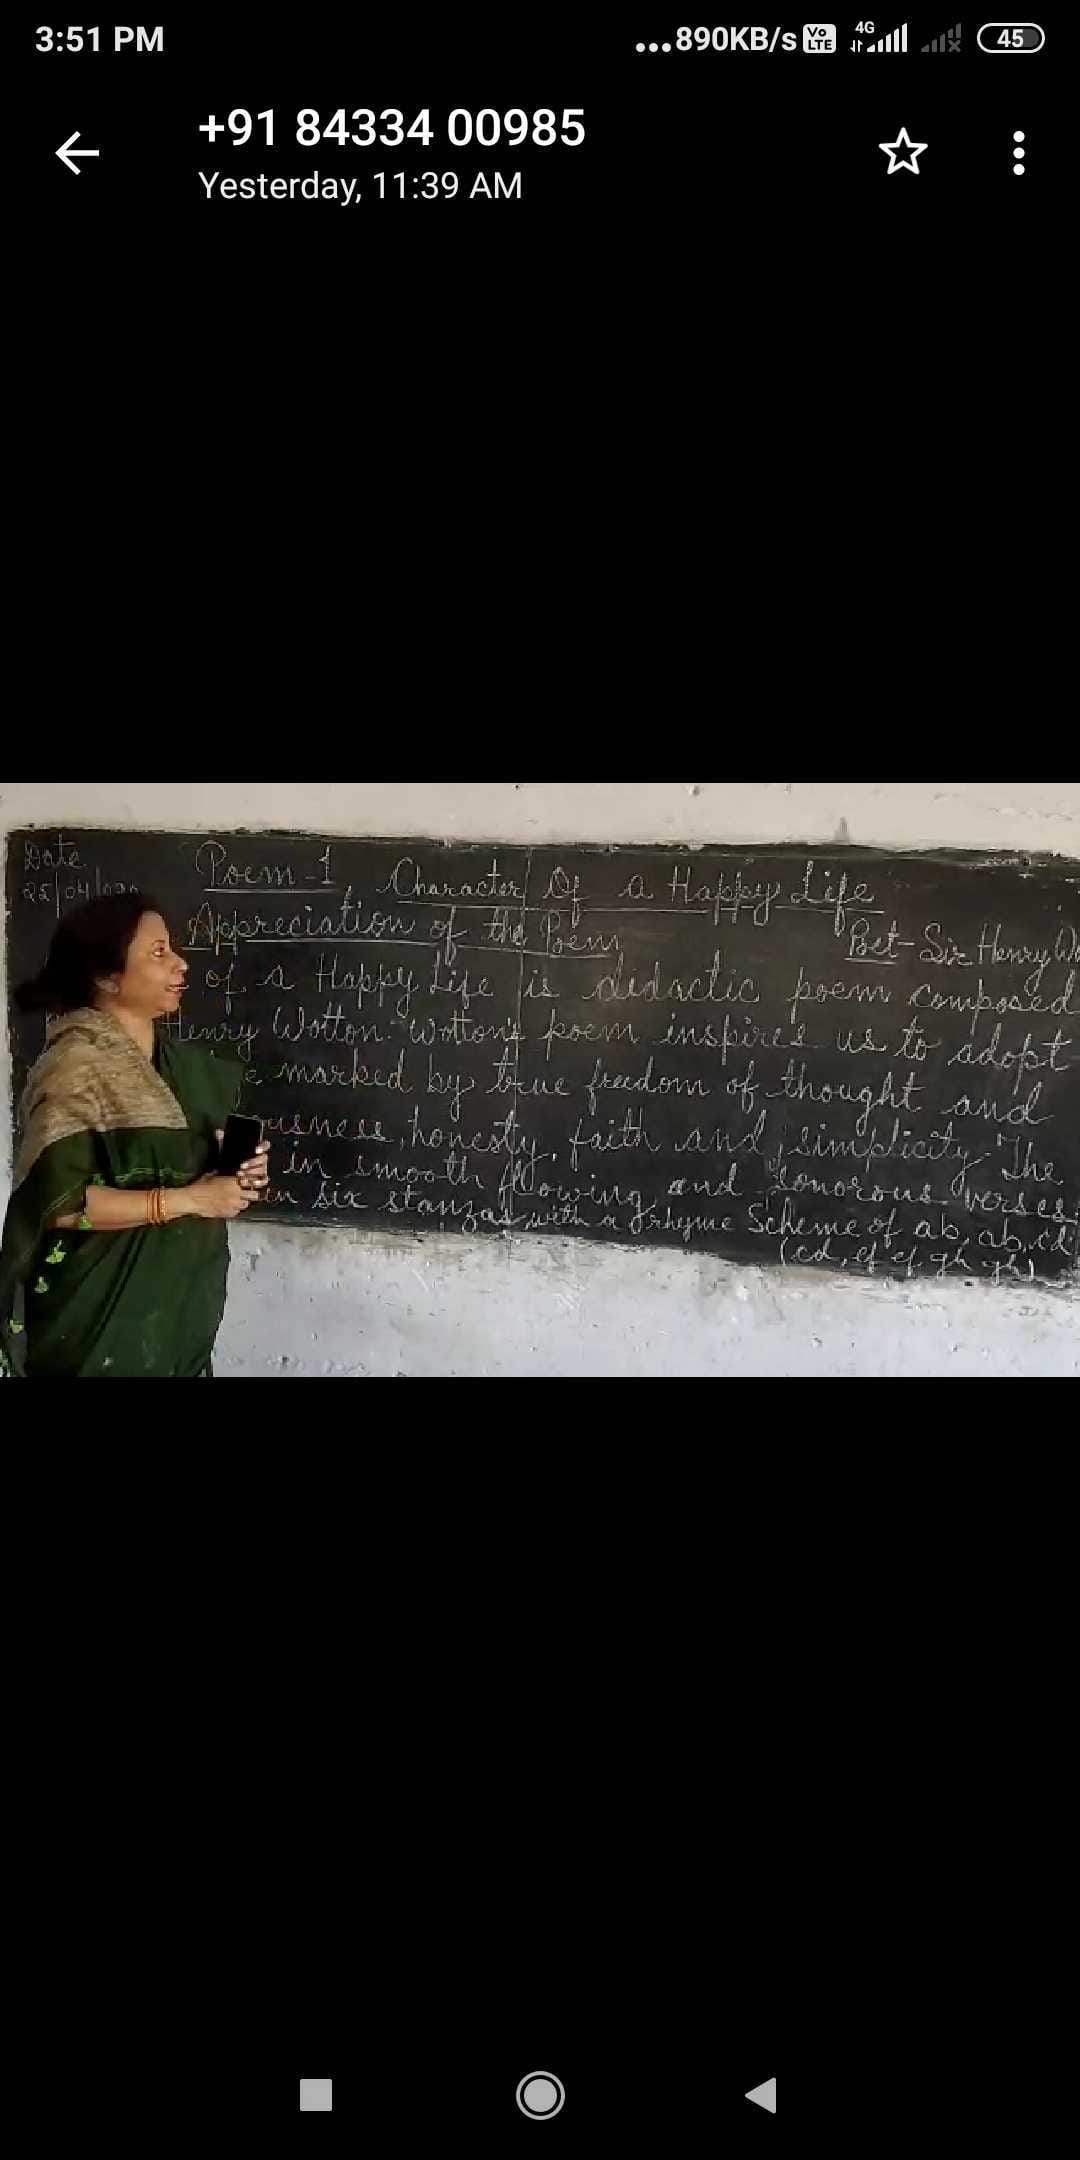 3:51 PM
...890KB/s Vo LTE 4G 45
+91 84334 00985
Yesterday, 11:39 AM
Date
25/04/020
Poem-1, Character Of a Happy Life
Appreciation of the Poem
Poet- Sir Henry Wo
of a Happy Life is didactic poem composed
Henry Wotton. Wotton's poem inspires us to adopt
e marked by true freedom of thought and
ousness, honesty, faith and simplicity. The
in smooth flowing and sonorous verses
in six stanzas with a rhyme Scheme of ab, ab, cd
(cd, ef ef gh gh)